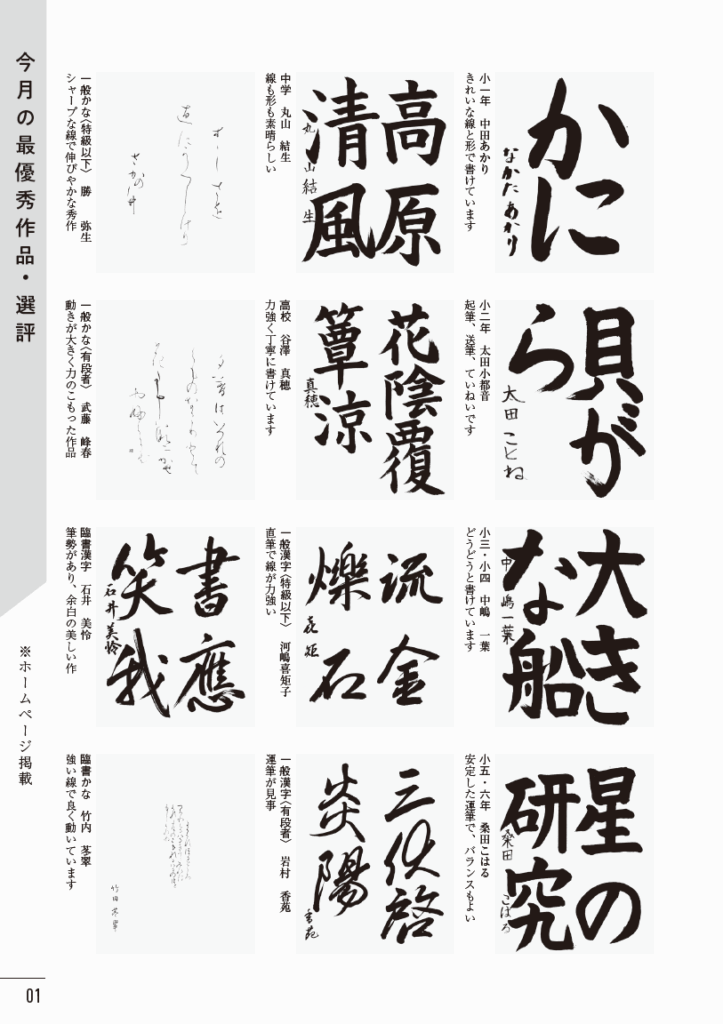 今月の最優秀作品・選評
※ホームページ掲載
01
かに
なかた あかり
小一年　中田あかり
きれいな線と形で書けています
貝が
ら
太田 ことね
小二年　太田小都音
起筆、送筆、ていねいです
大き
な船
中嶋一葉
小三・小四　中嶋　一葉
どうどうと書けています
星の
研究
桑田 こはる
小五・六年　桑田こはる
安定した運筆で、バランスもよい
高原
清風
丸山結生
中学　丸山　結生
線も形も素晴らしい
花陰覆
簟涼
真穂
高校　谷澤　真穂
力強く丁寧に書けています
流金
爍石
喜矩
一般漢字〈特級以下〉　河嶋喜矩子
直筆で線が力強い
三伏啓
炎陽
香苑
一般漢字〈有段者〉　岩村　香苑
運筆が見事
一般かな〈特級以下〉　勝　弥生
シャープな線で伸びやかな秀作
一般かな〈有段者〉　武藤　峰春
動きが大きく力のこもった作品
書應
笑我
石井美怜
臨書漢字　石井　美怜
筆勢があり、余白の美しい作
臨書かな　竹内　茤翠
強い線で良く動いています